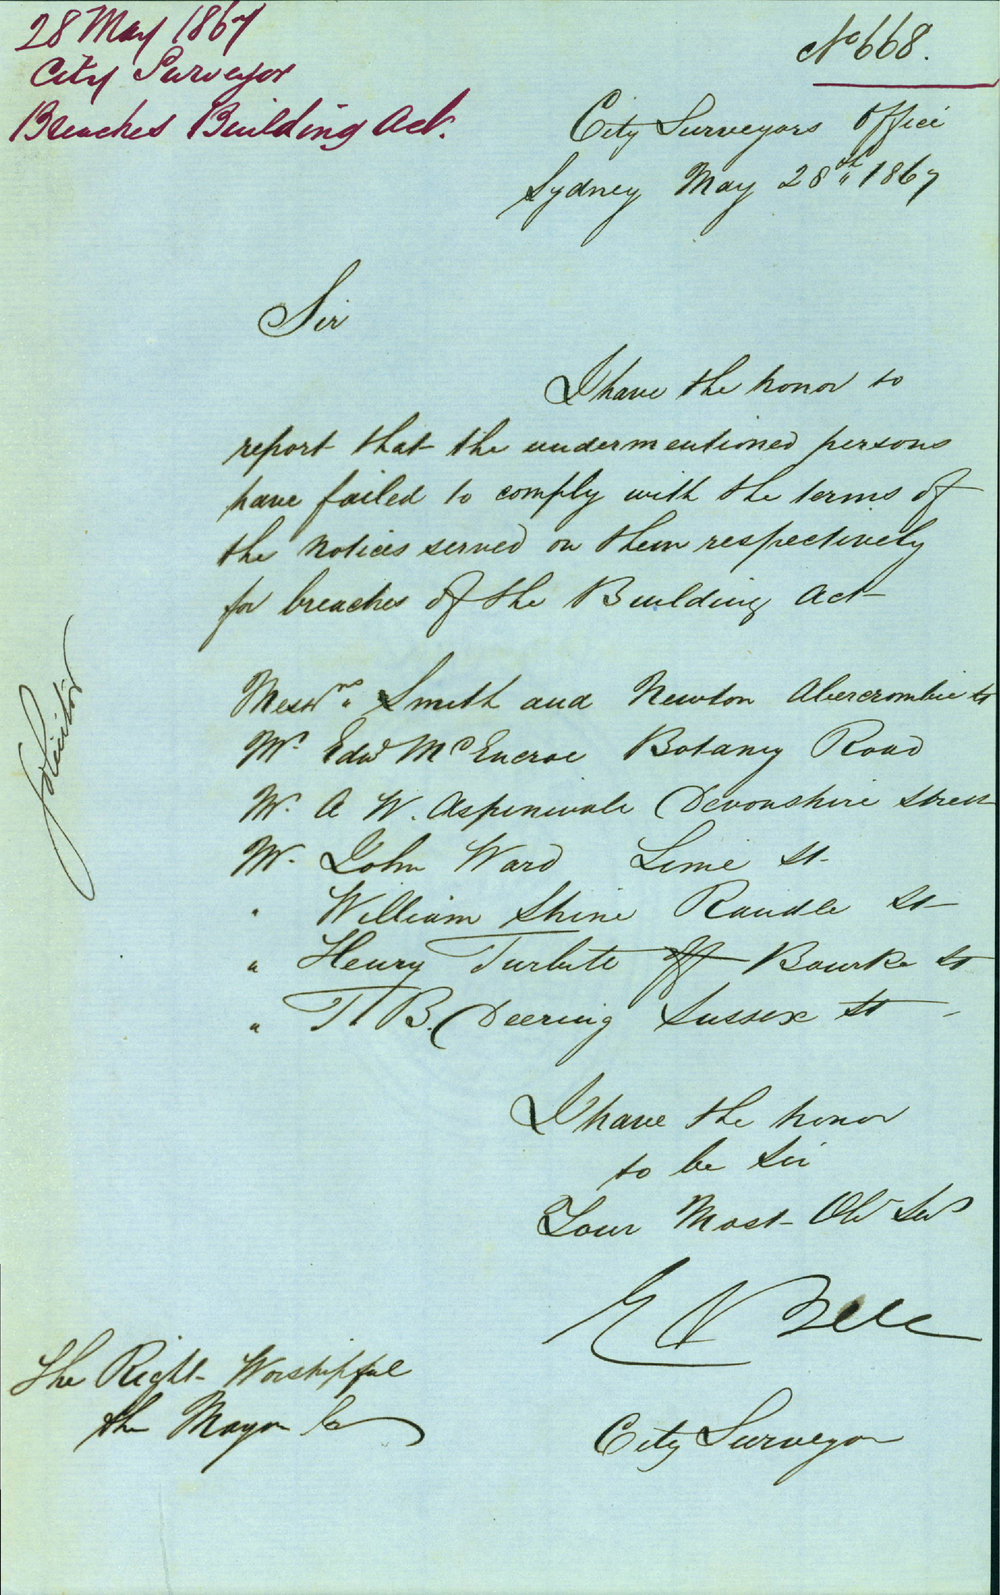 28 May 1867
City Surveyor
Breaches Building Act.
No 668.
City Surveyors Office
Sydney May 28th 1867
Sir
I have the honor to
report that the undermentioned persons
have failed to comply with the terms of
the notices served on them respectively
for breaches of the Building Act
Messrs Smith and Newton Abercrombie St
Mr. Edwd McEncroe Botany Road
Mr. A W. Aspinwale Devonshire Street
Mr. John Ward Lime St
" William Shine Randle St
" Henry Turbite off Bourke St
" T B. Deering Sussex St
Solicitor
I have the honor
to be Sir
Your Most Obt Servt
E Bell
City Surveyor
The Right Worshipful
the Mayor &c